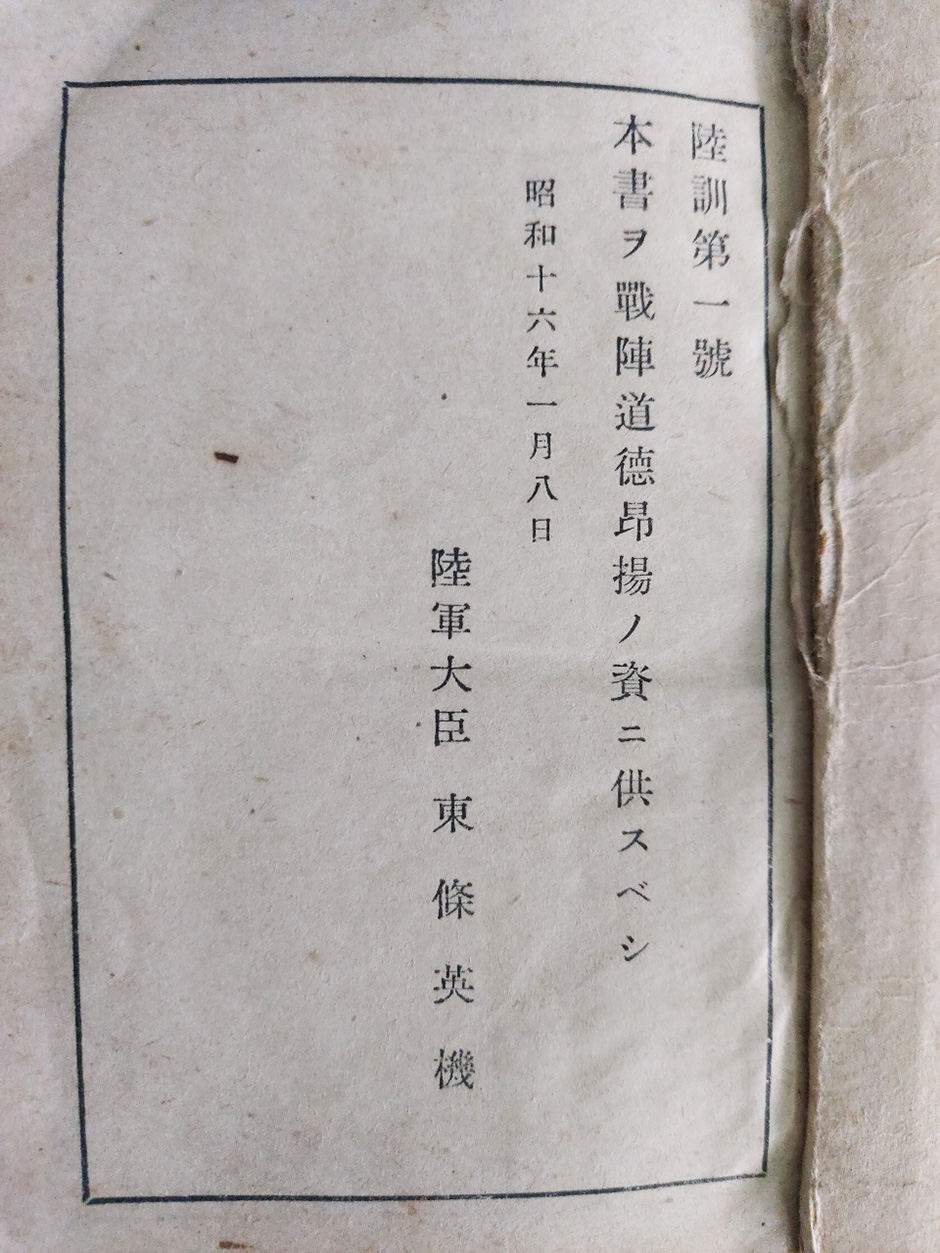 陸訓第一號
本書ヲ戰陣道德昂揚ノ資ニ供スベシ
昭和十六年一月八日
陸軍大臣 東條英機